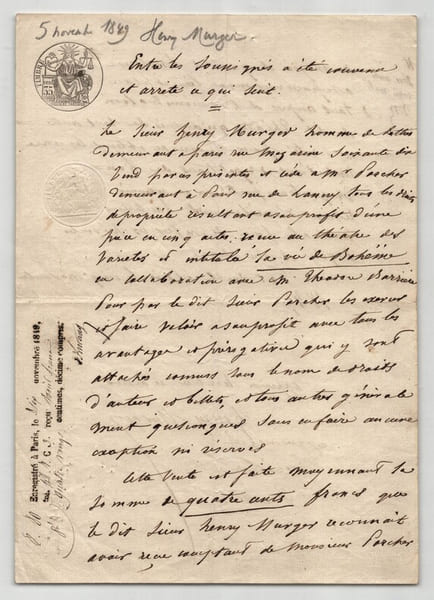 5 novembre 1849 Henry Murger
TIMBRE
35
Entre les soussignés a été convenu
et arrêté ce qui suit.
Le Sieur henry Murger homme de lettres
demeurant a paris rue Mazarine soixante dix
vend par ces présentes et cède a Mr Porcher
demeurant a Paris rue de Lancry tous les droits
de propriété résultant a son profit d'une
pièce en cinq actes, reçue au théatre des
Variétés et intitulé la vie de Bohême
en collaboration avec Mr Théodore Barrière
Pour par le dit Sieur Porcher les exercer
et faire valoir a son profit avec tous les
avantages et prérogatives qui y sont
attachés connus sous le nom de droits
d'auteur et billets, et tous autres générale
ment quelconques sans en faire aucune
exception ni réserves
Cette Vente est faite moyennant la
somme de quatre cents francs que
le dit Sieur henry Murger reconnait
avoir reçue comptant de Monsieur Porcher
Enregistré à Paris, le novembre 1849,
reçu
centimes, décime compris.